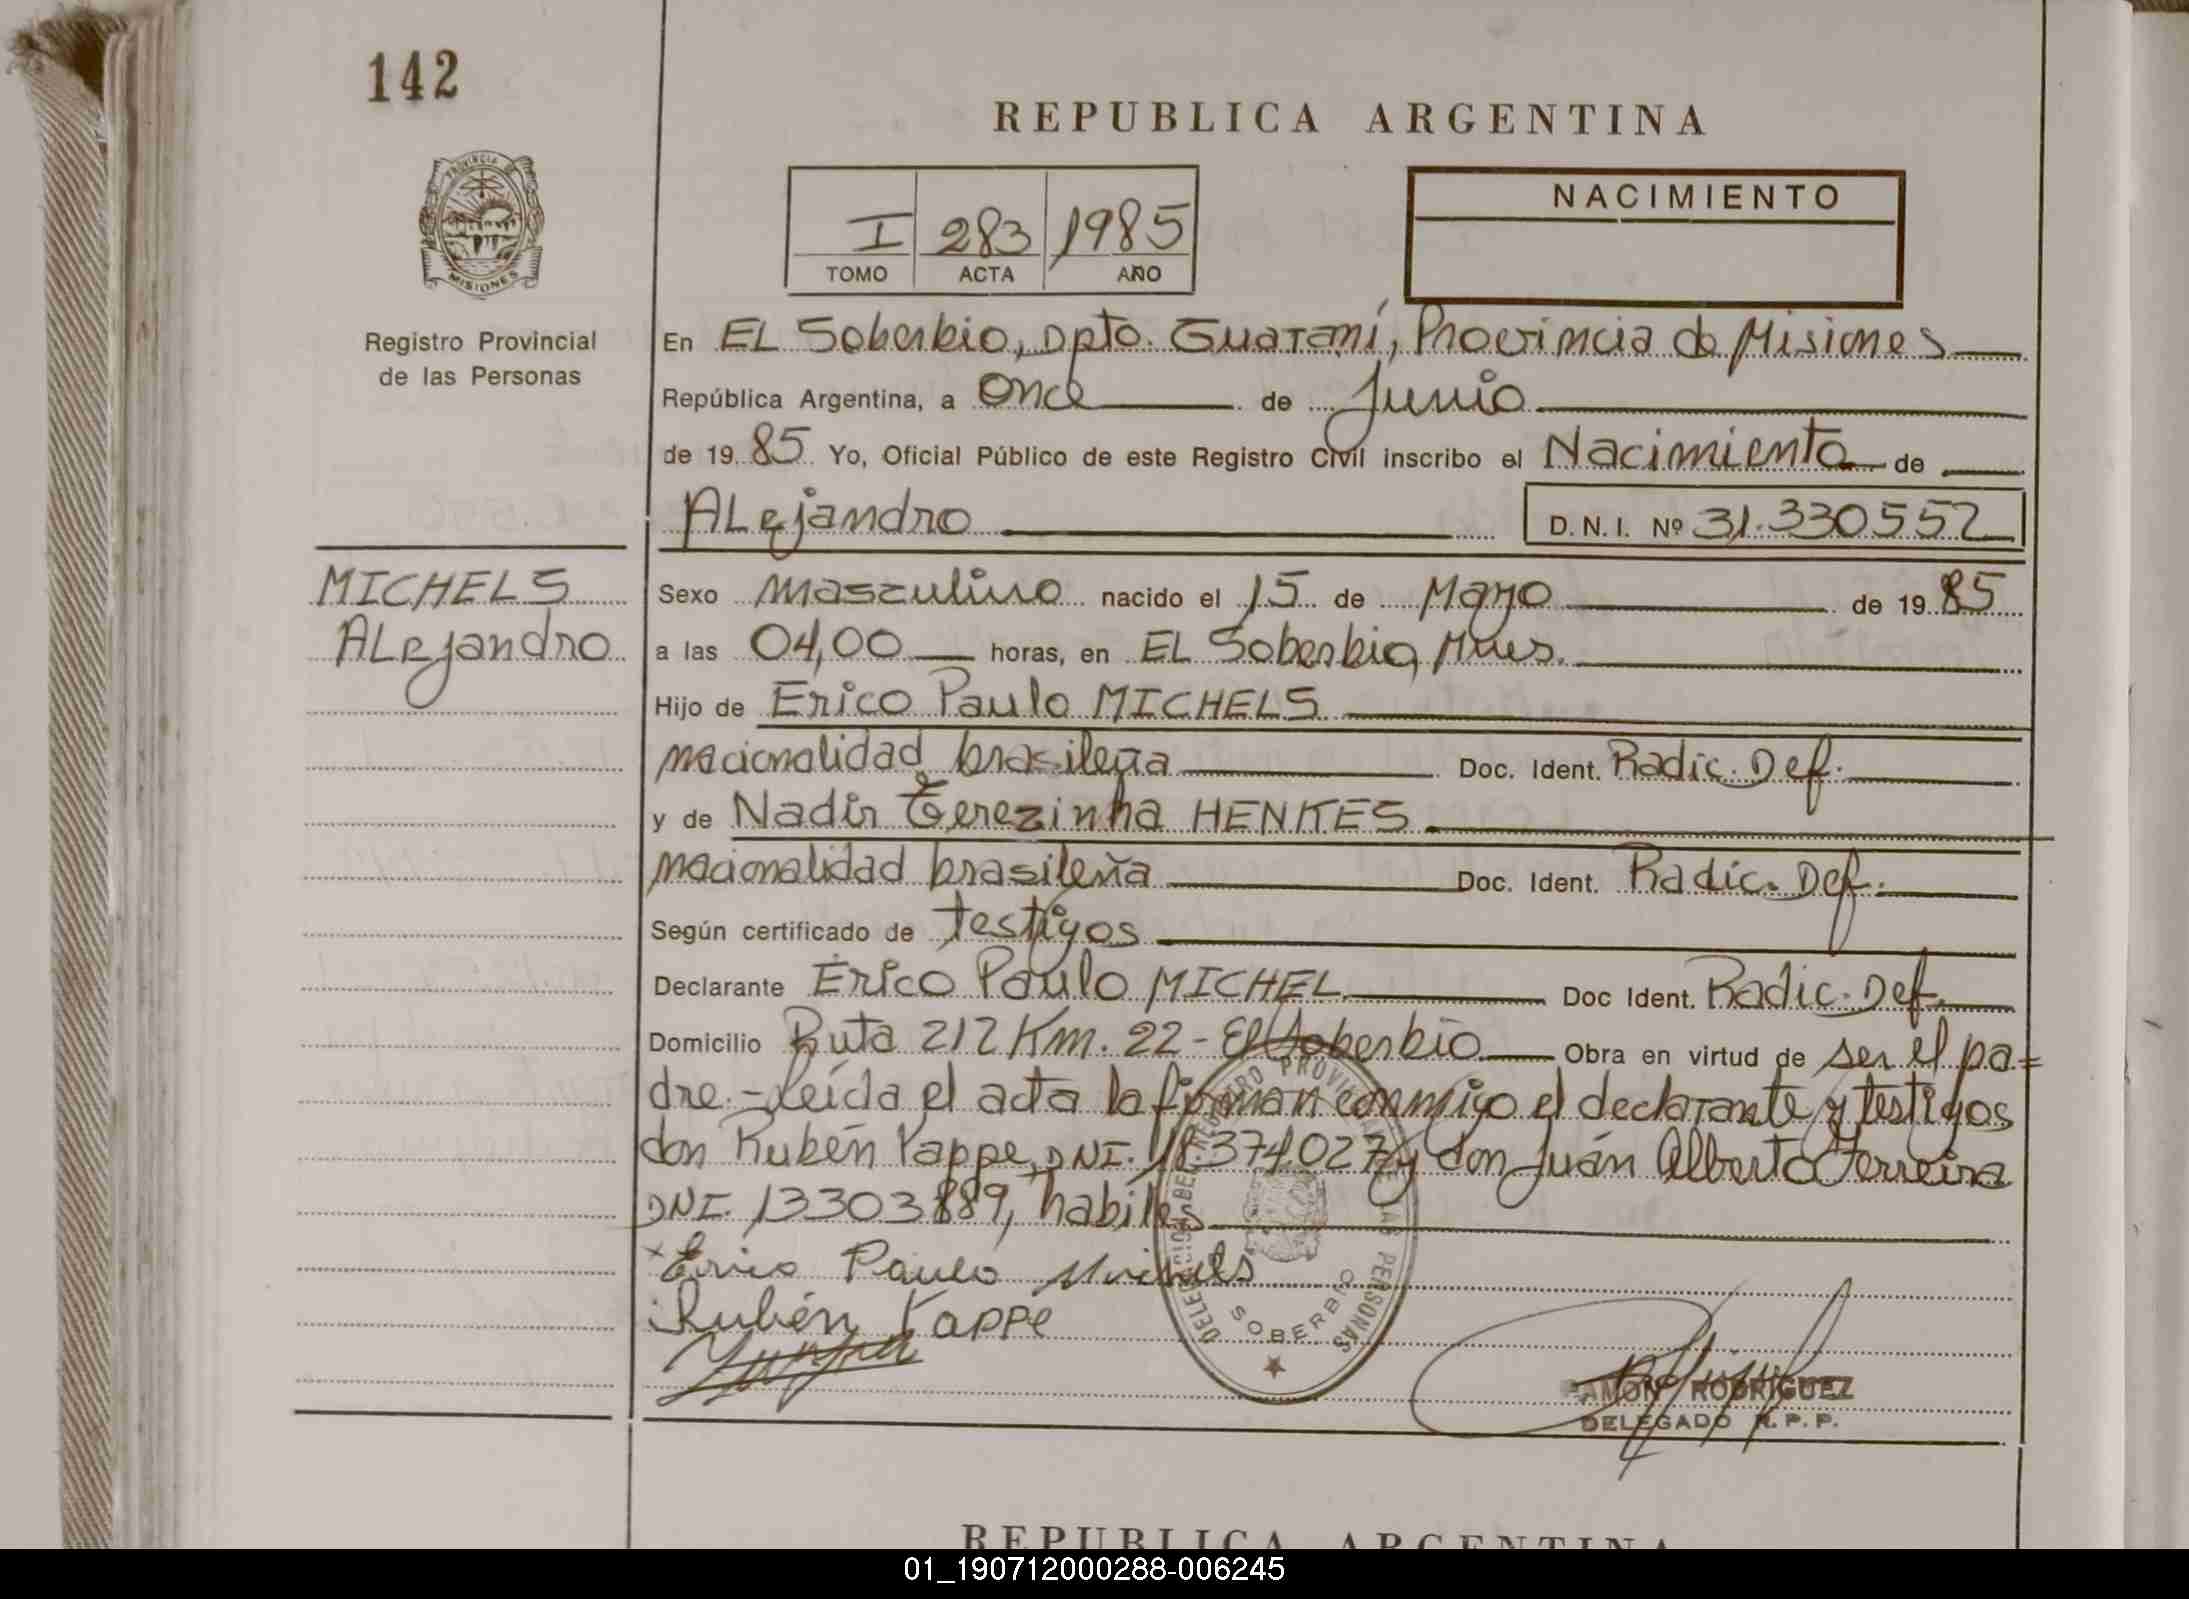 142
REPUBLICA ARGENTINA
PROVINCIA
MISIONES
I 283 1985
TOMO ACTA AÑO
NACIMIENTO
Registro Provincial
de las Personas
En EL Soberbio, Dpto. Guaraní, Provincia de Misiones
República Argentina, a once de Junio
de 1985 Yo, Oficial Público de este Registro Civil inscribo el Nacimiento de
ALejandro D.N.I. Nº 31.330552
MICHELS
ALejandro
Sexo masculino nacido el 15 de Mayo de 1985
a las 04,00 horas, en EL Soberbio, Mnes.
Hijo de Erico Paulo MICHELS
nacionalidad brasileña Doc. Ident. Radic. Def.
y de Nadir Terezinha HENKES
nacionalidad brasileña Doc. Ident. Radic. Def.
Según certificado de testigos
Declarante Erico Paulo MICHEL Doc Ident. Radic. Def.
Domicilio Ruta 212 Km. 22 - El Soberbio Obra en virtud de ser el pa=
dre.- Leída el acta la firman conmigo el declarante y testigos
don Rubén Kappe, DNI. 18.374.027 y don Juán Alberto Ferreira
DNI. 13303889, habiles
x Erico Paulo Michels
Rubén Kappe
DELEGACION DEL REGISTRO PROVINCIAL DE LAS PERSONAS
SOBERBIO
RAMON RODRIGUEZ
DELEGADO R.P.P.
REPUBLICA ARGENTINA
01_190712000288-006245